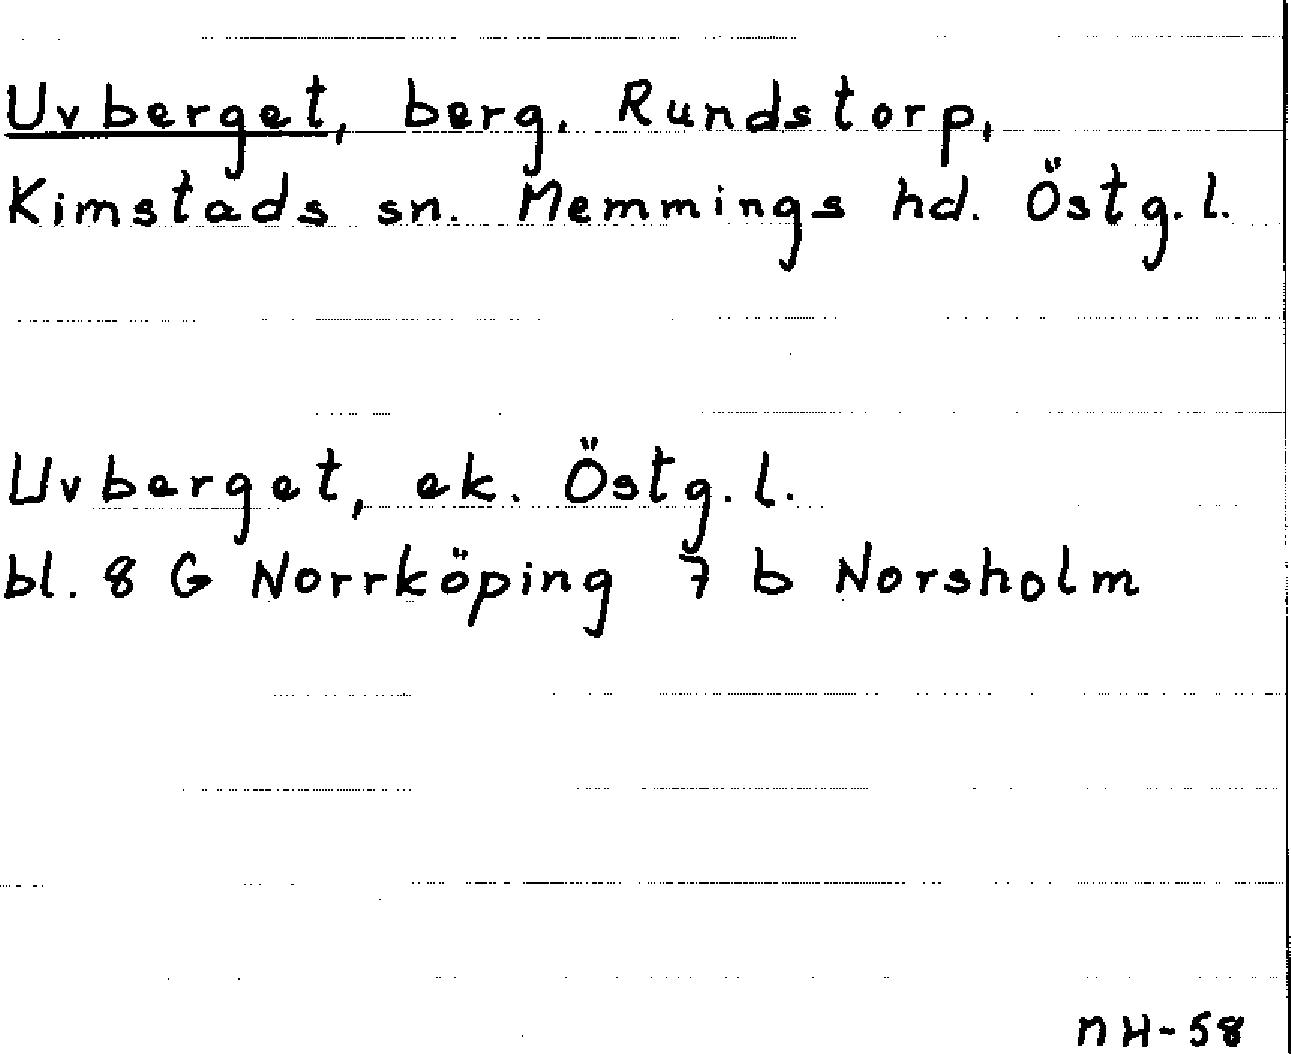 Uvberget, berg. Rundstorp,
Kimstads sn. Memmings hd. Östg. l.
Uvberget, ek. Östg. l.
bl. 8 G Norrköping 7 b Norsholm
nH-58